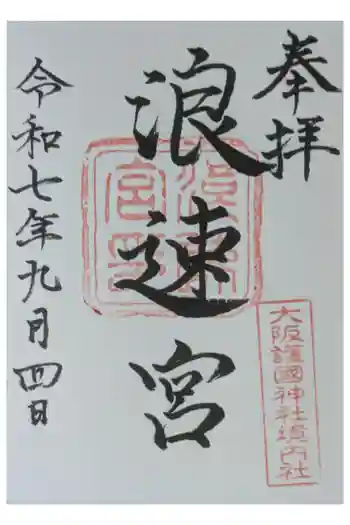 奉拝
浪速宮
令和七年九月四日
大阪護國神社境内社